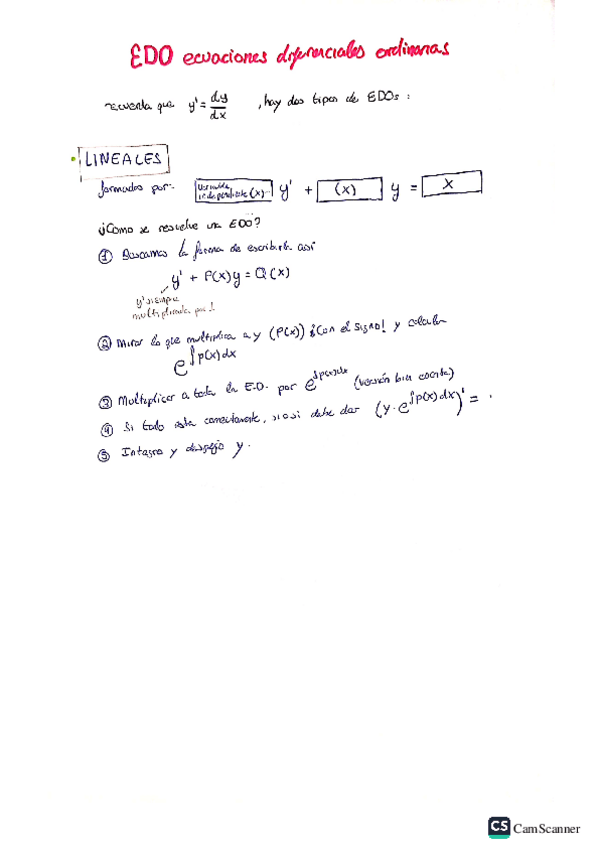 EDO ecuaciones diferenciales ordinarias
recuerda que y' = dy/dx , hay dos tipos de EDOs :
LINEALES
formados por: variable independiente (x) y' + (x) y = x
¿Como se resuelve una EDO?
① Buscamos la forma de escribirla así
y' + P(x)y = Q(x)
y' siempre
multiplicada por 1
② Mirar lo que multiplica a y (P(x)) ¡Con el signo! y calcular
e^∫p(x)dx
③ Multiplicar a toda la E.D. por e^∫p(x)dx (versión bien escrita)
④ Si todo esta correctamente, si o si debe dar (y · e^∫p(x)dx)' = ·
⑤ Integro y despejo y.
CS CamScanner